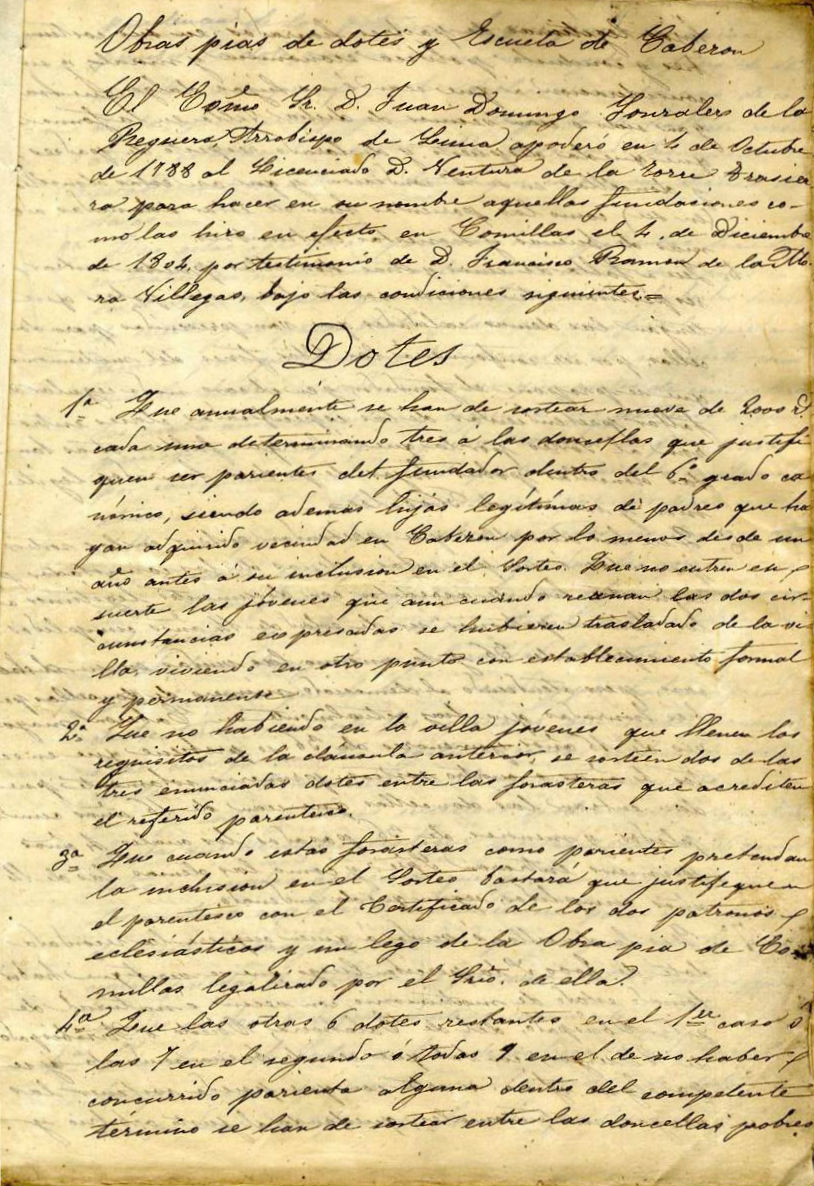 Obras pias de dotes y Escuela de Caberon
El Exmo Sr. D. Juan Domingo Gonzalers de la
Reguera, Arrobispo de Lima, apoderó en 4 de Octubre
de 1788 al Licenciado D. Ventura de la Torre Trasier
ra para hacer en su nombre aquellas fundasiones co-
mo las hiro en efecto en Comillas el 4 de Diciembre
de 1804, por testimonio de D. Francisco Ramon de la Mo
ra Villegas, bajo las condiciones siguientes=
Dotes
1ª Que anualmente se han de sortear nueve de 2000 r.
cada una determinando tres á las doncellas que justifi
quen ser parientes del fundador dentro del 6º grado ca
nónico, siendo ademas hijas legítimas de padres que ha
yan adquirido vecindad en Caberon por lo menos desde un
año antes á su inclusion en el Sorteo. Que no entren en
suerte las jóvenes que aun cuando reunan las dos cir-
cunstancias expresadas se hubieren trasladado de la vi
lla, viviendo en otro punto con establecimiento formal
y permanente
2ª Que no habiendo en la villa jóvenes que llenen los
requisitos de la cláusula anterior, se sorteen dos de las
tres enunciadas dotes entre las forasteras que acrediten
el referido parentesco.
3ª Que cuando estas forasteras como parientes pretendan
la inclusion en el Sorteo bastara que justifiquen
el parentesco con el Certificado de los dos patronos
eclesiásticos y un lego de la Obra pia de Co-
millas legalirado por el Srio. de ella.
4ª Que las otras 6 dotes restantes en el 1er caso ó
las 7 en el segundo ó todas 9 en el de no haber
concurrido parienta alguna dentro del competente
término se han de sortear entre las doncellas pobres